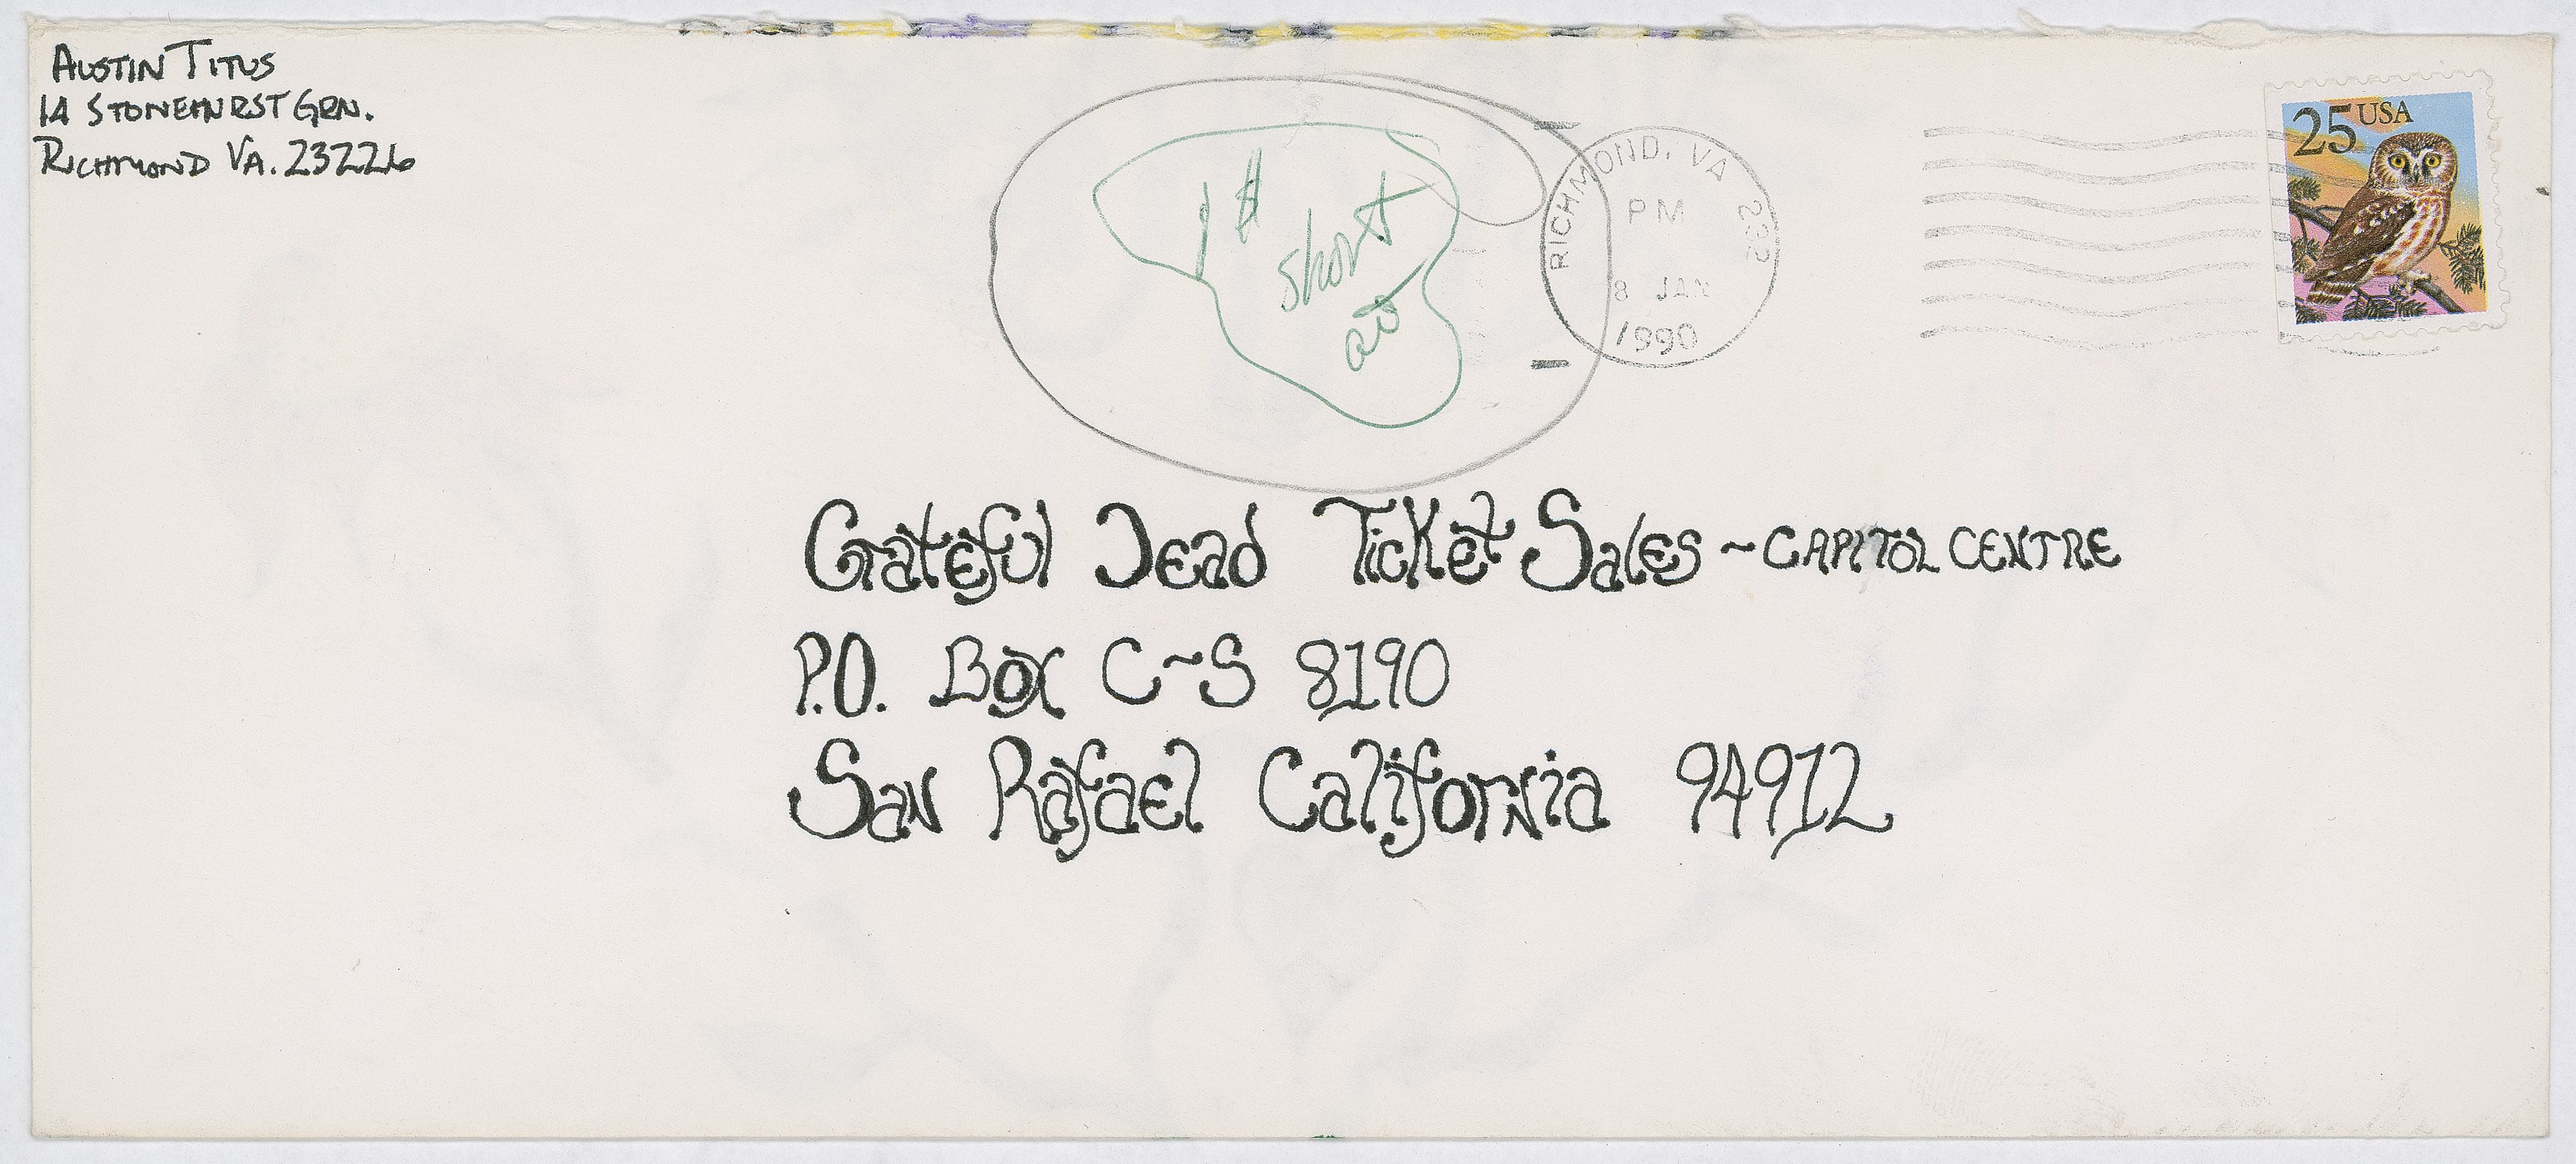 AUSTIN TITUS
14 STONEHURST GRN.
RICHMOND VA. 23226
1 $
short
RICHMOND, VA 232
PM
8 JAN
1990
25 USA
Grateful Dead Ticket Sales ~ CAPITOL CENTRE
P.O. Box C~S 8190
San Rafael California 94912